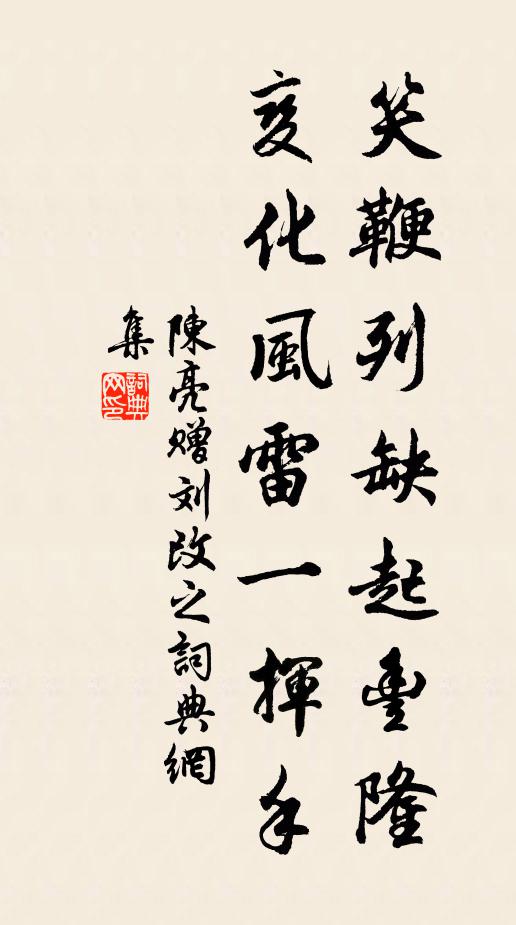 笑鞭列缺起豐隆
变化風雷一揮手
陳亮赠刘改之詞典網
集
詞典网印